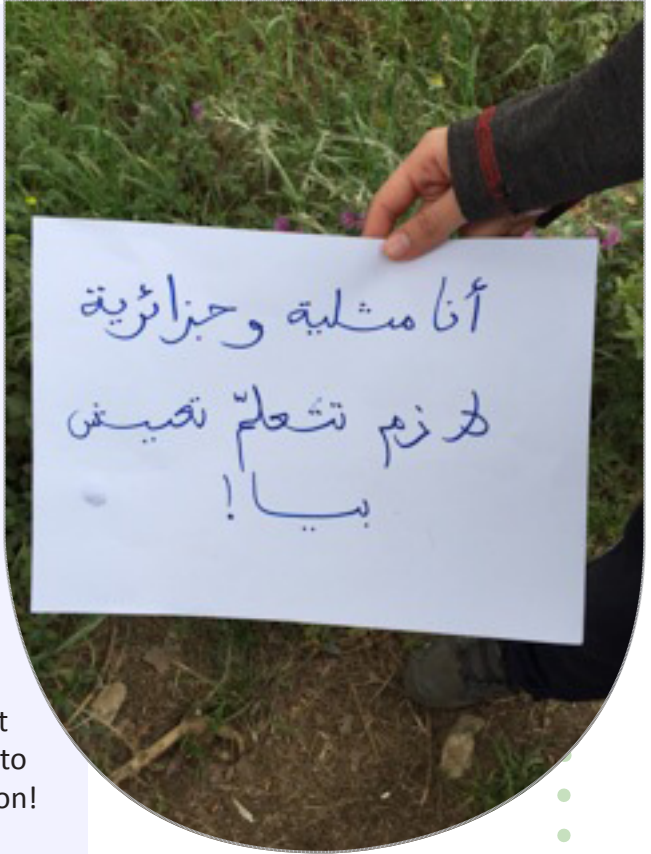 أنا مثلية وجزائرية
لازم تتعلّم تعيش
بيا!
t
to
on!